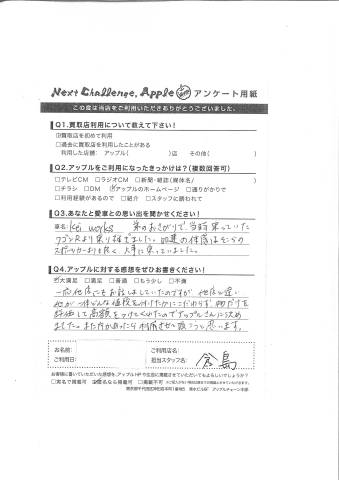 Next Challenge, Apple アンケート用紙
この度は当店をご利用いただきありがとうございました。
Q1.買取店利用について教えて下さい!
☑買取を初めて利用
□過去に買取店を利用したことがある
利用した店舗: アップル( )店 その他( )
Q2.アップルをご利用になったきっかけは?(複数回答可)
□テレビCM □ラジオCM □新聞・雑誌(媒体名/ )
□チラシ □DM ☑アップルのホームページ □通りがかりで
□利用経験があるので □紹介 □スタッフに誘われて
Q3.あなたと愛車との思い出を聞かせください!
車名: Kei works 弟のおさがりで当時乗っていた
ワゴンRより乗り
スポーツカーより 大事に乗っていました。
Q4.アップルに対する感想をぜひお書きください!
☑大満足 □満足 □普通 □もう少し □不満
一応他店にもお話しましていたのですが、他店と違い
高額をつけてくれたのでアップルさんに決め
ました。また何かあったら 思います。
お名前: ご利用店名:
ご利用日: 担当スタッフ名: 倉島
お客様に書いていただいた感想を、アップルHPや生出に掲載させていただいてもよろしいでしょうか?
□実名で掲載可 ☑匿名なら掲載可 □掲載不可